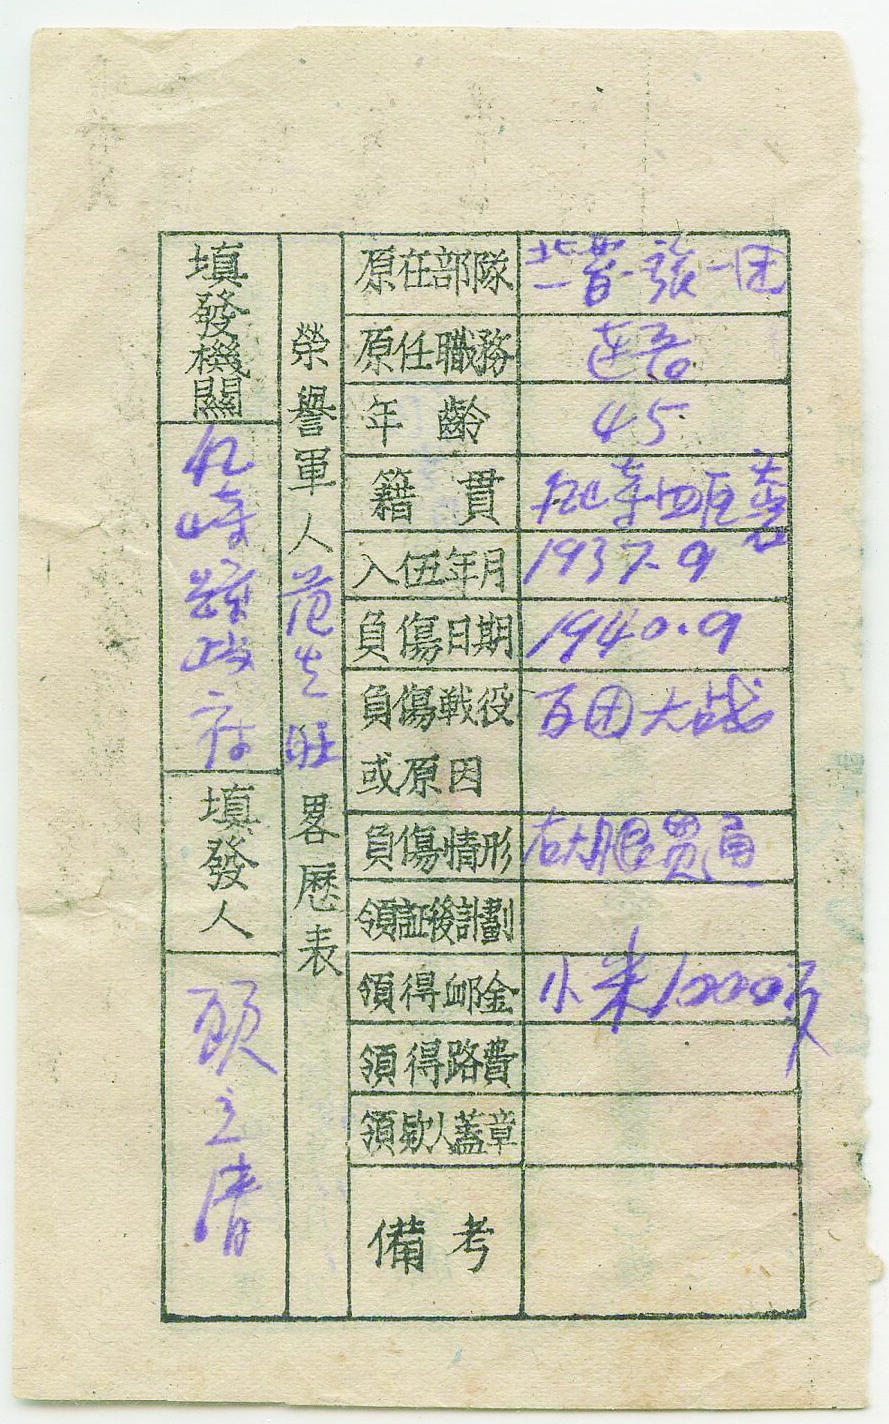 原在部隊
原任職務
年齡 45
籍貫
入伍年月 1937.9
負傷日期 1940.9
負傷戰役或原因 百团大战
負傷情形 右大腿贯通
領証後計劃
領得卹金 小米1000斤
領得路費
領款人蓋章
備考
榮譽軍人范生旺畧歷表
填發機關
政府
填發人
顾立清